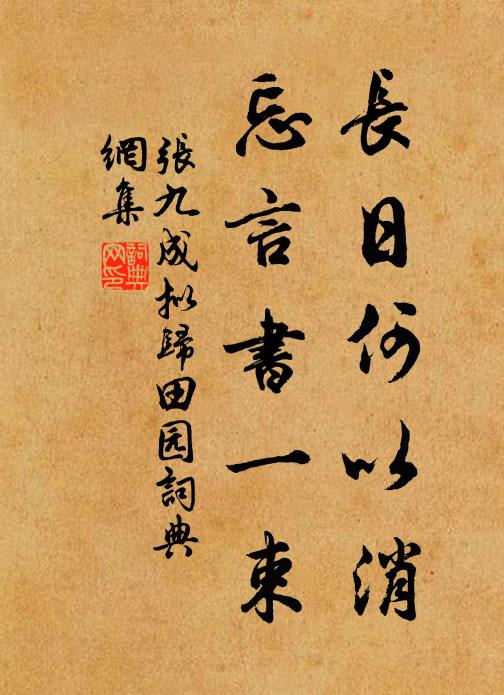 長日何以消
忘言書一束
張九成拟歸田园詞典
網集
詞典網印